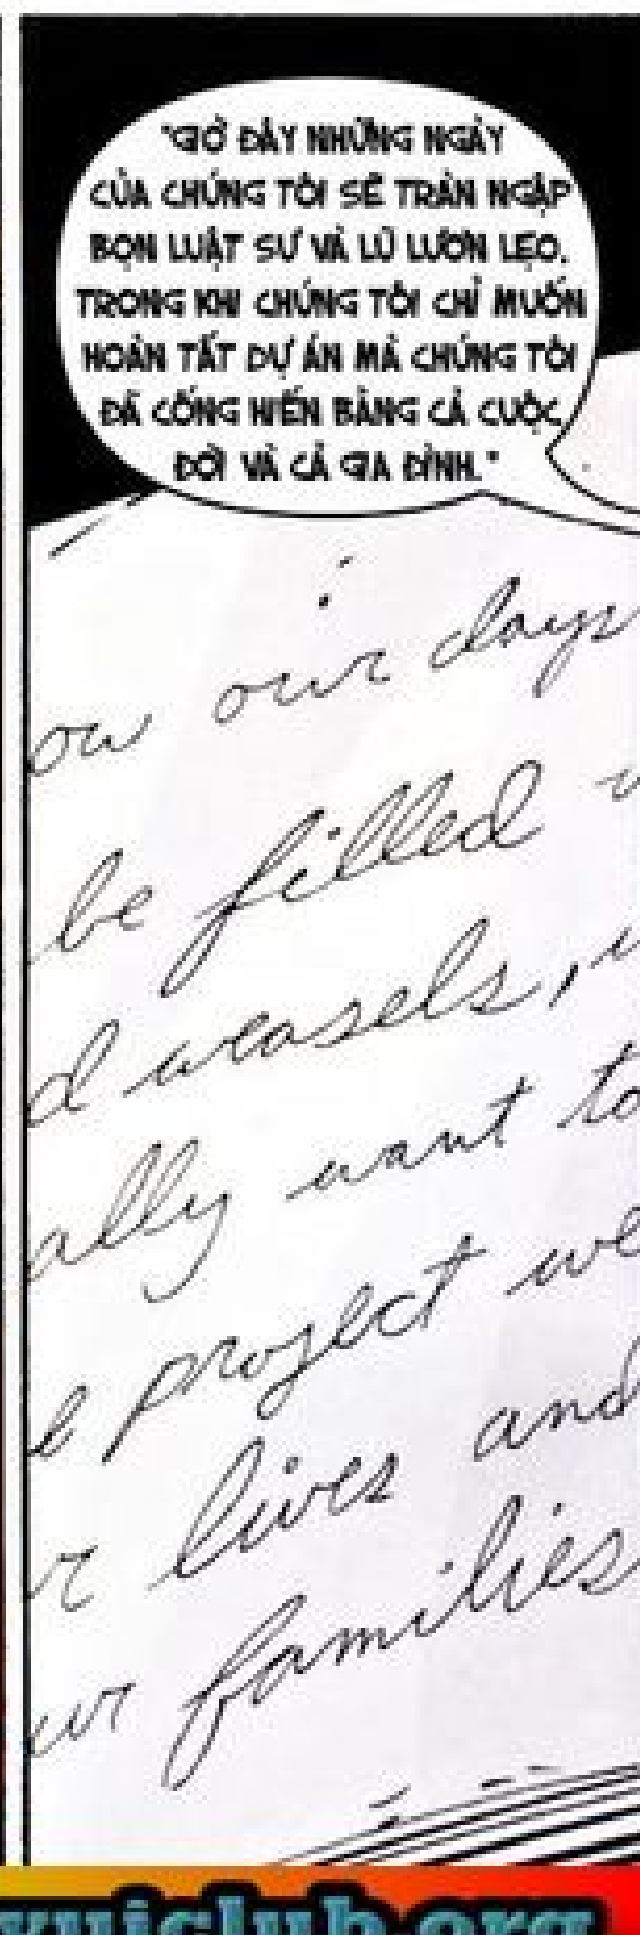 "GIỜ ĐÂY NHỮNG NGÀY
CỦA CHÚNG TÔI SẼ TRÀN NGẬP
BỌN LUẬT SƯ VÀ LŨ LƯƠN LẸO.
TRONG KHI CHÚNG TÔI CHỈ MUỐN
HOÀN TẤT DỰ ÁN MÀ CHÚNG TÔI
ĐÃ CỐNG HIẾN BẰNG CẢ CUỘC
ĐỜI VÀ CẢ GIA ĐÌNH."
ow our days
be filled
d weasels,
ally want to
e project we
r lives and
ur families
xuiclub.org